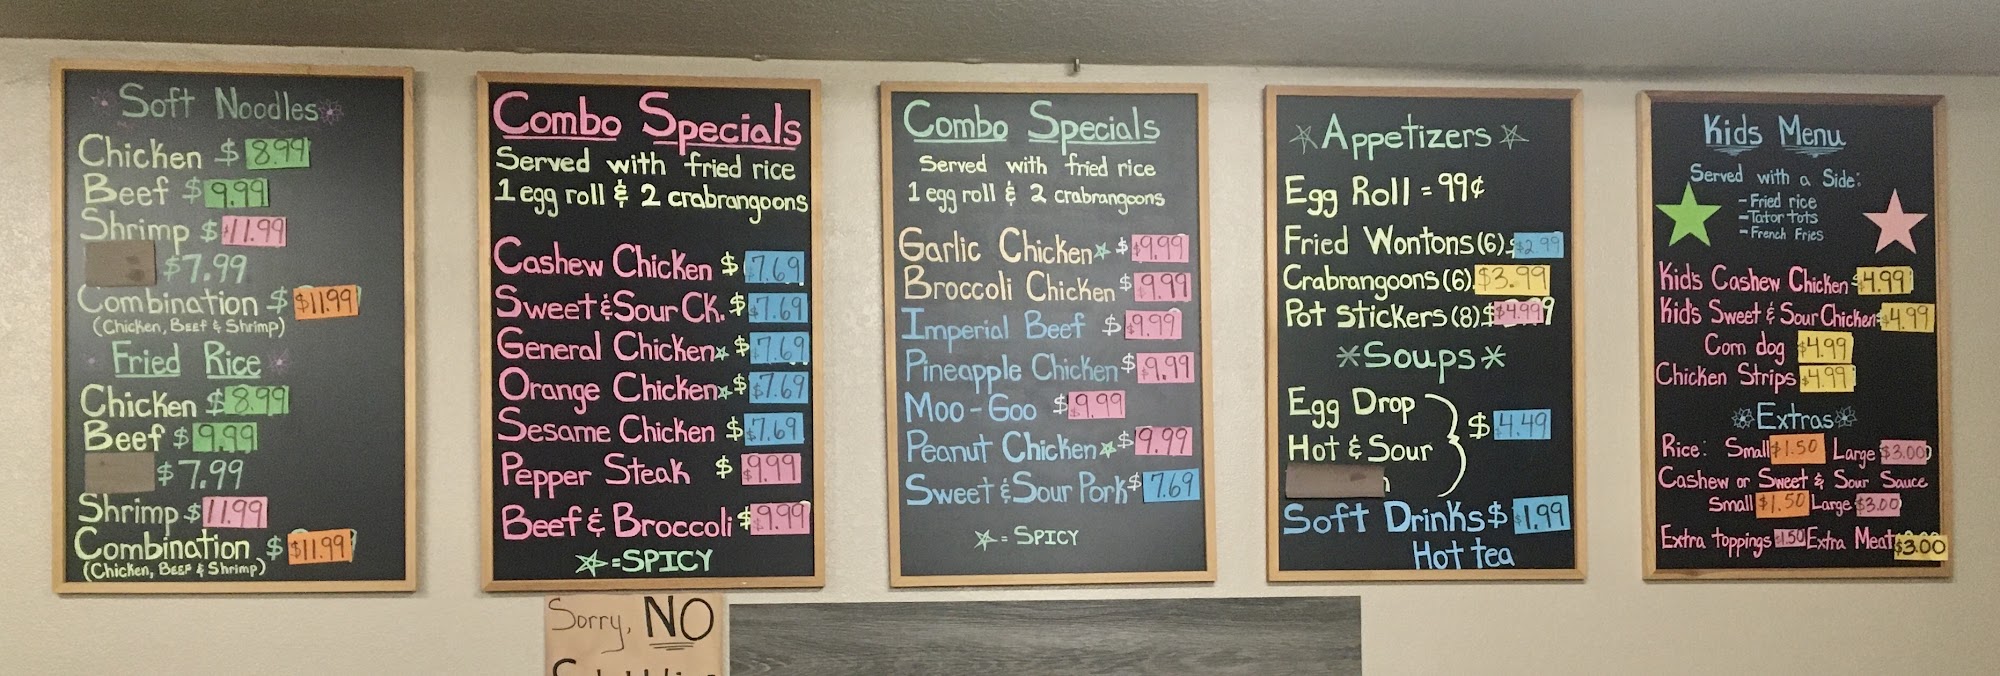 Soft Noodles
Chicken $ 8.99
Beef $ 9.99
Shrimp $ $11.99
$7.99
Combination $ $11.99
(Chicken, Beef & Shrimp)
Fried Rice
Chicken $ 8.99
Beef $ 9.99
$7.99
Shrimp $ 11.99
Combination $ $11.99
(Chicken, Beef & Shrimp)
Combo Specials
Served with fried rice
1 egg roll & 2 crabrangoons
Cashew Chicken $ $7.69
Sweet & Sour Ck. $ $7.69
General Chicken $ $7.69
Orange Chicken $ $7.69
Sesame Chicken $ $7.69
Pepper Steak $ $9.99
Beef & Broccoli $ $9.99
= SPICY
Combo Specials
Served with fried rice
1 egg roll & 2 crabrangoons
Garlic Chicken $ $9.99
Broccoli Chicken $ $9.99
Imperial Beef $ $9.99
Pineapple Chicken $ $9.99
Moo-Goo $ $9.99
Peanut Chicken $ $9.99
Sweet & Sour Pork $ $7.69
= SPICY
Appetizers
Egg Roll = 99¢
Fried Wontons (6) $2.99
Crabrangoons (6) $3.99
Pot Stickers (8) $ $4.99
Soups
Egg Drop
Hot & Sour
$ $4.49
Soft Drinks $ $1.99
Hot tea
Kids Menu
Served with a Side:
- Fried rice
- Tator tots
- French Fries
Kid's Cashew Chicken $4.99
Kid's Sweet & Sour Chicken $4.99
Corn dog $4.99
Chicken Strips $4.99
Extras
Rice: Small $1.50 Large $3.00
Cashew or Sweet & Sour Sauce
Small $1.50 Large $3.00
Extra toppings $1.50 Extra Meat $3.00
Sorry, NO